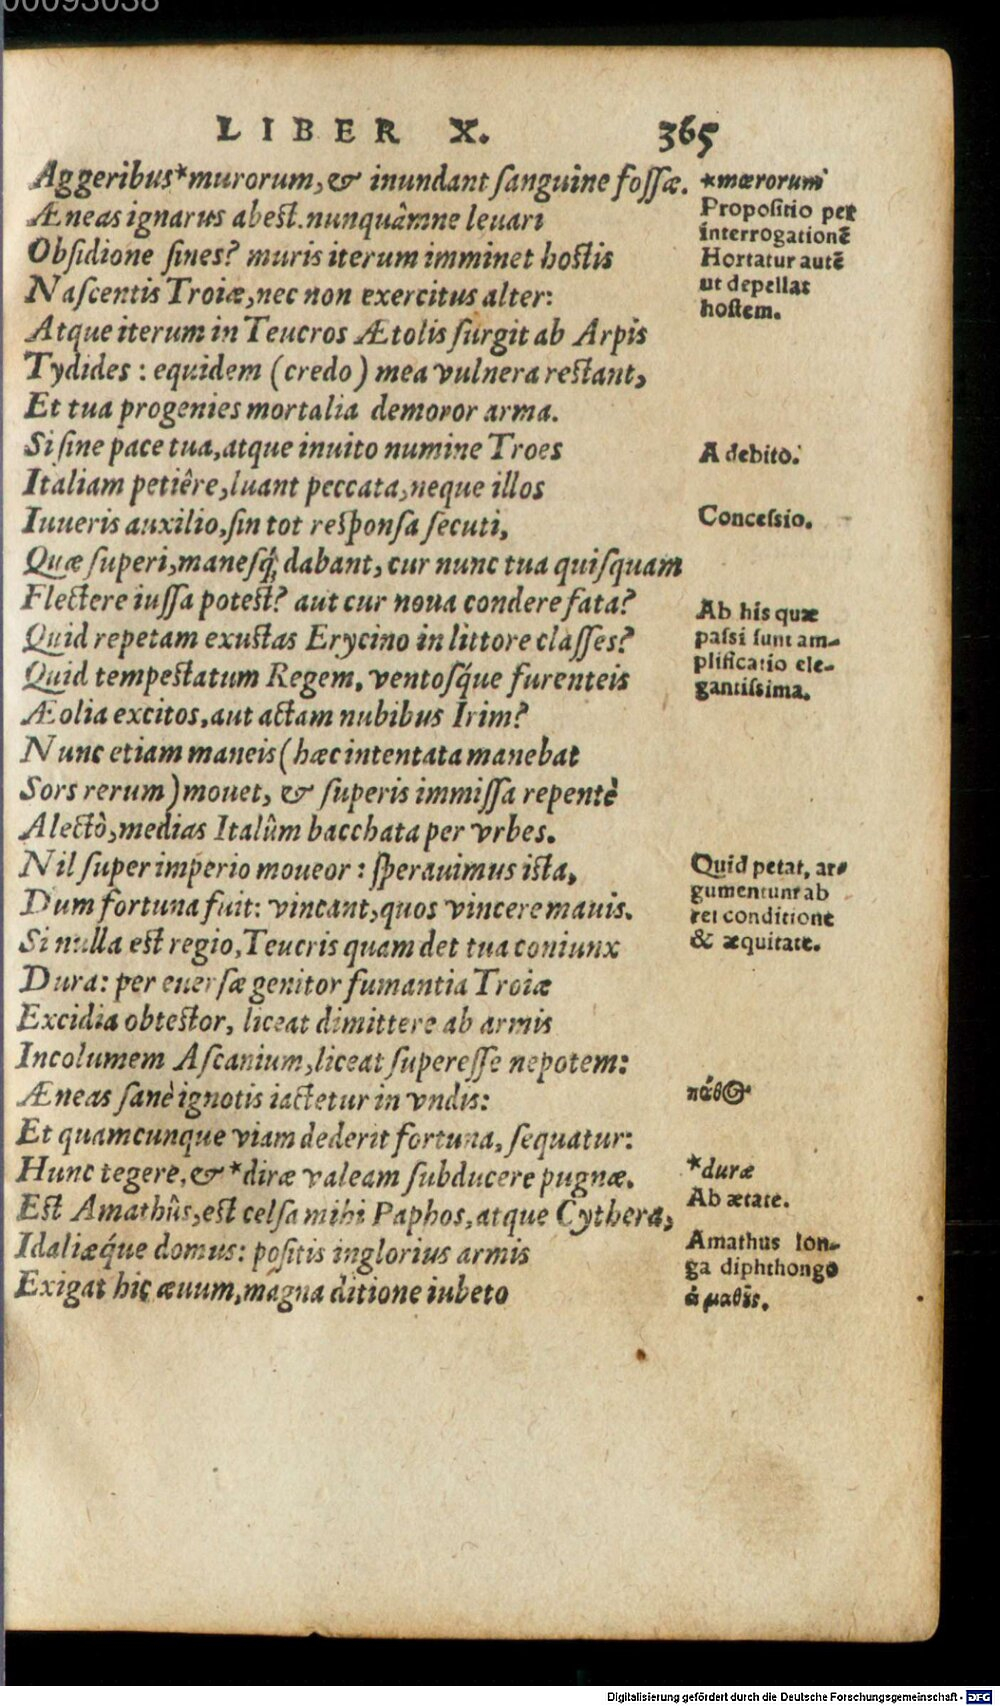 00093038
LIBER X. 365
Aggeribus*murorum,& inundant ſanguine foſſæ.
Æneas ignarus abest.nunquâmne leuari
Obſidione ſines? muris iterum imminet hostis
Naſcentis Troiæ,nec non exercitus alter:
Atque iterum in Teucros Ætolis ſurgit ab Arpis
Tydides: equidem (credo) mea vulnera restant,
Et tua progenies mortalia demoror arma.
Si ſine pace tua,atque inuito numine Troes
Italiam petiêre,luant peccata,neque illos
Iuueris auxilio,ſin tot reſponſa ſecuti,
Quæ ſuperi,maneſq́; dabant, cur nunc tua quiſquam
Flectere iuſſa potest? aut cur noua condere fata?
Quid repetam exustas Erycino in littore claſſes?
Quid tempestatum Regem, ventoſq́ue furenteis
Æolia excitos,aut actam nubibus Irim?
Nunc etiam maneis(hæc intentata manebat
Sors rerum)mouet, & ſuperis immiſſa repentè
Alectò,medias Italûm bacchata per vrbes.
Nil ſuper imperio moueor: ſperauimus ista,
Dum fortuna fuit: vincant,quos vincere mauis.
Si nulla est regio,Teucris quam det tua coniunx
Dura: per euerſæ genitor fumantia Troiæ
Excidia obtestor, liceat dimittere ab armis
Incolumem Aſcanium,liceat ſupereſſe nepotem:
Æneas ſanè ignotis iactetur in vndis:
Et quamcunque viam dederit fortuna, ſequatur:
Hunc tegere,& *diræ valeam ſubducere pugnæ.
Est Amathûs,est celſa mihi Paphos,atque Cythera,
Idaliæq́ue domus: poſitis inglorius armis
Exigat hic æuum,magna ditione iubeto
*mærorum
Propoſitio per
interrogationẽ
Hortatur autẽ
ut depellat
hoſtem.
A debito.
Conceſsio.
Ab his quæ
paſsi ſunt am-
plificatio ele-
gantiſsima.
Quid petat, ar-
gumentunt ab
rei conditione
& æquitate.
πάθος
*duræ
Ab ætate.
Amathus lon-
ga diphthongo
ἀμαθῦς.
Digitalisierung gefördert durch die Deutsche Forschungsgemeinschaft - DFG